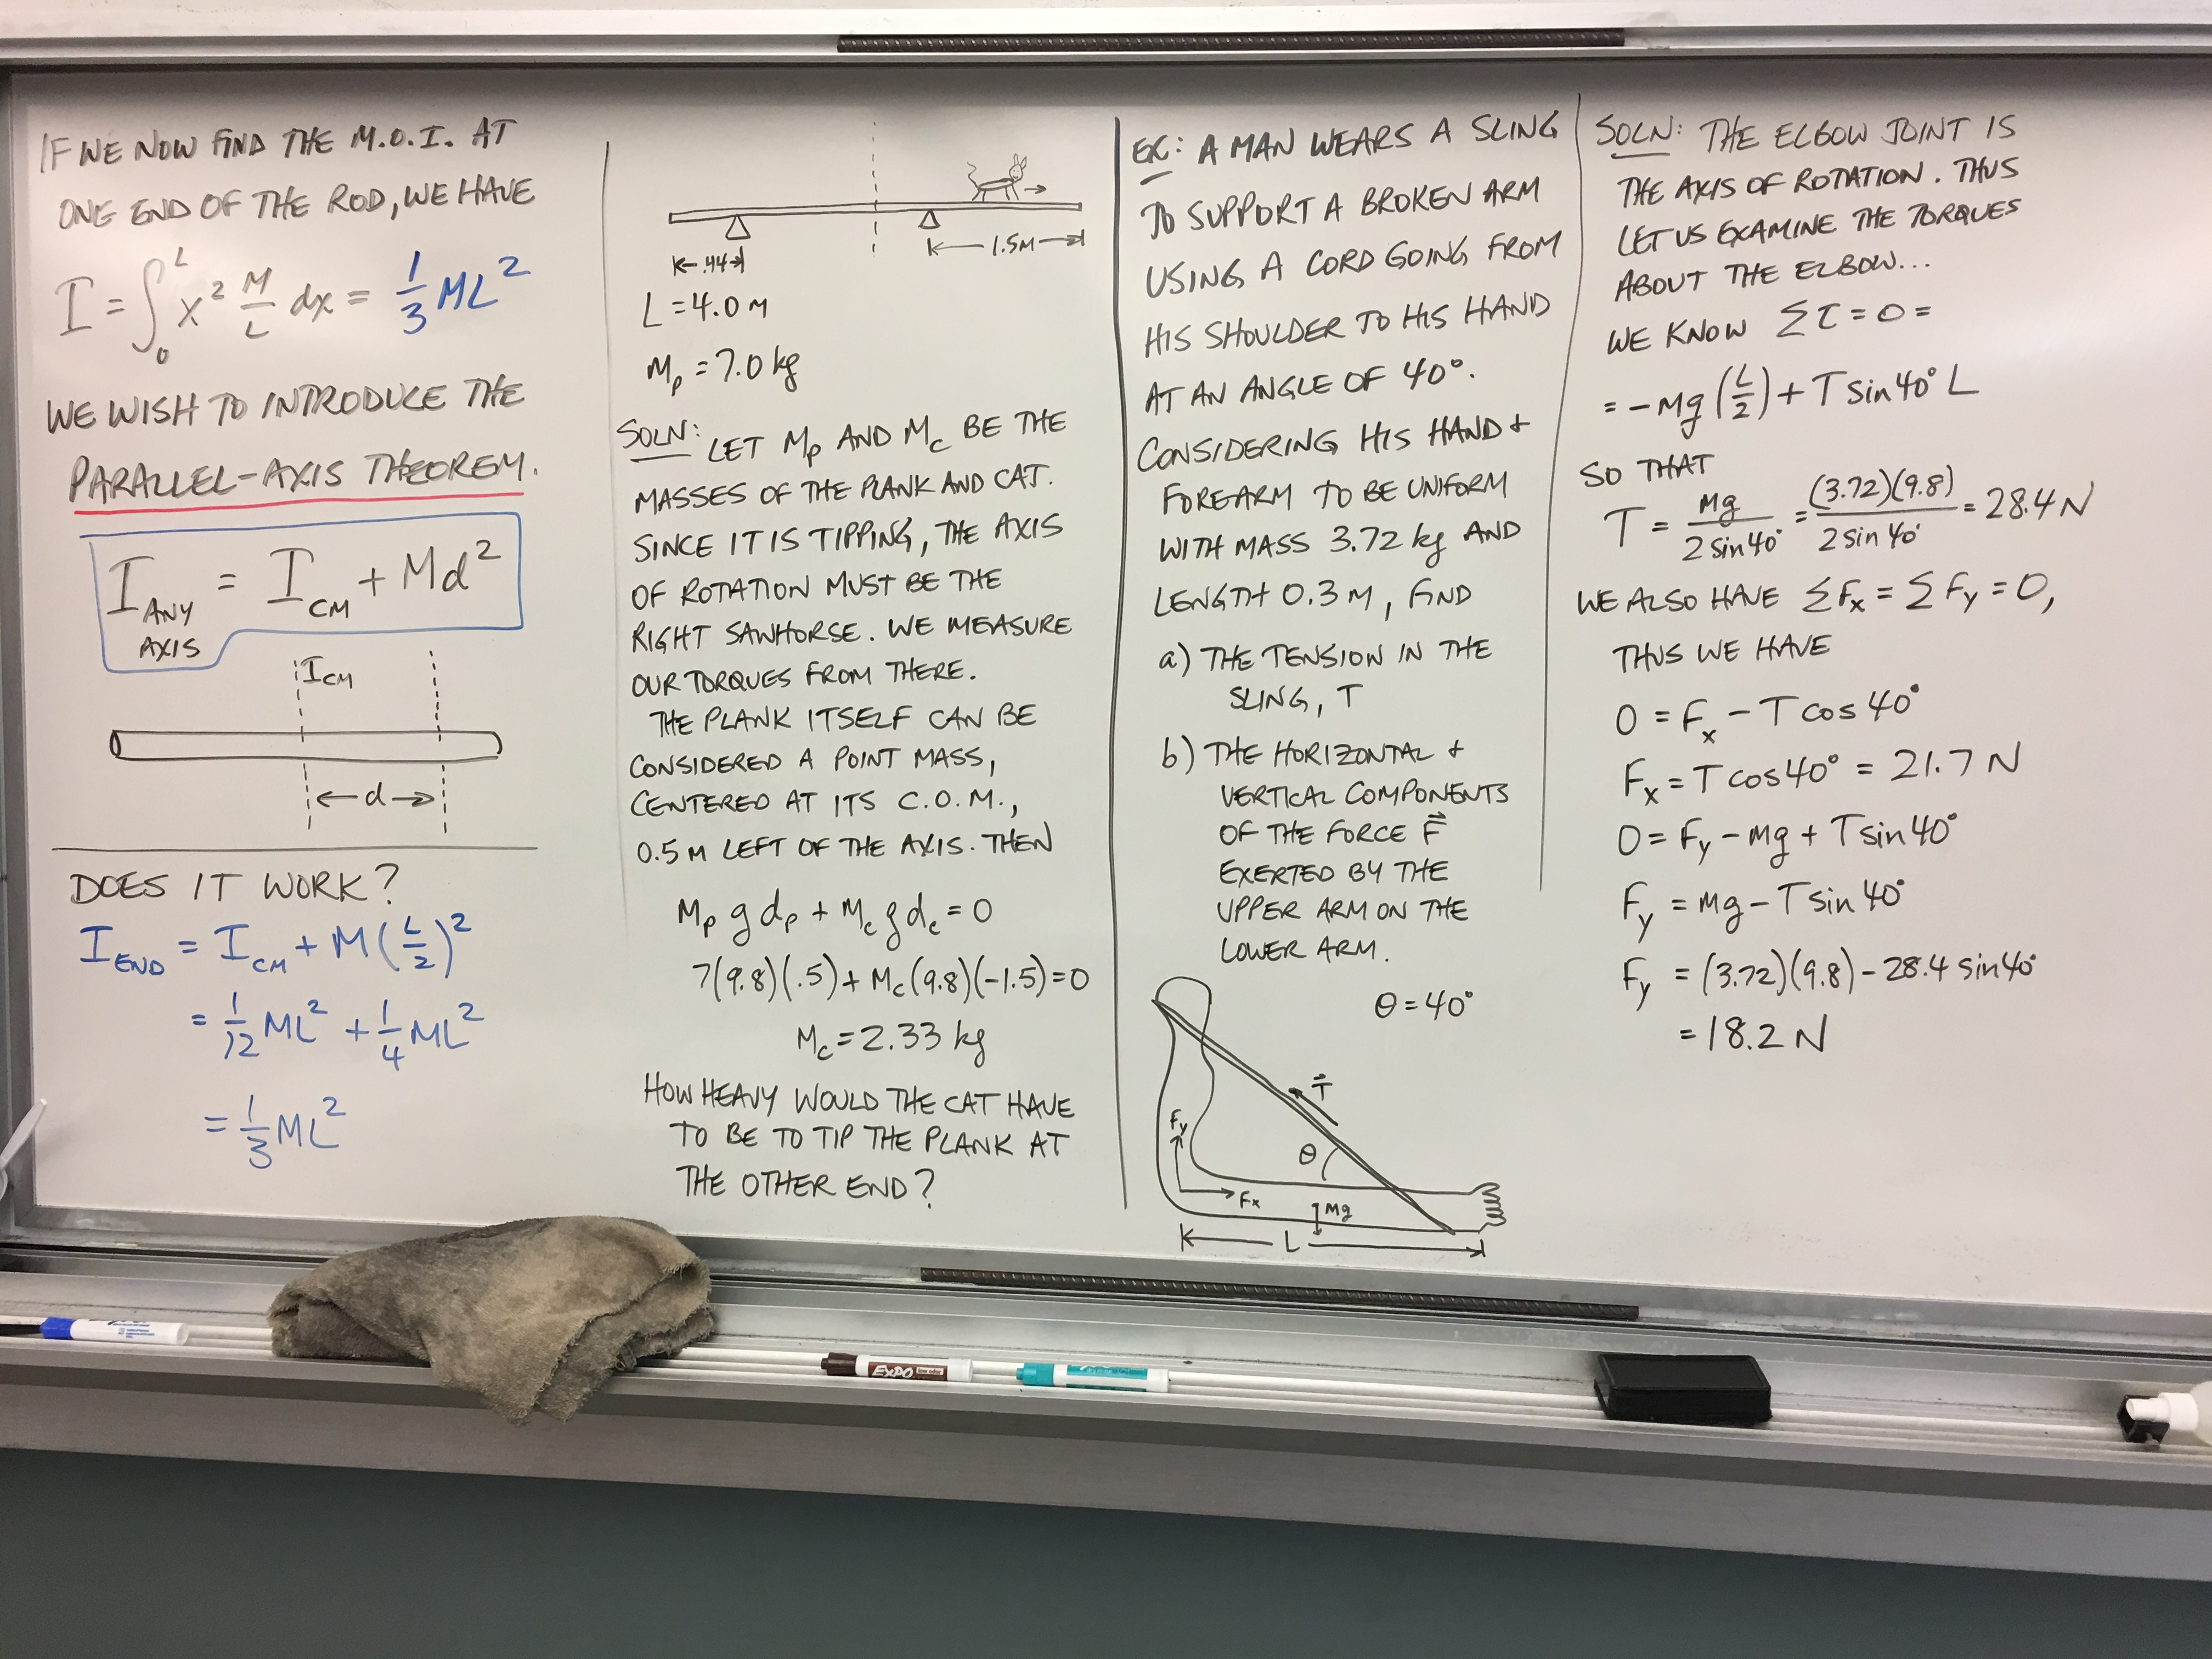 IF WE NOW FIND THE M.O.I. AT
ONE END OF THE ROD, WE HAVE
I = ∫₀ᴸ x² M/L dx = 1/3 ML²
WE WISH TO INTRODUCE THE
PARALLEL-AXIS THEOREM.
I ANY AXIS = I CM + Md²
I CM
d
DOES IT WORK?
I END = I CM + M(L/2)²
= 1/12 ML² + 1/4 ML²
= 1/3 ML²
.44
1.5M
L = 4.0 M
Mp = 7.0 kg
SOLN: LET Mp AND Mc BE THE
MASSES OF THE PLANK AND CAT.
SINCE IT IS TIPPING, THE AXIS
OF ROTATION MUST BE THE
RIGHT SAWHORSE. WE MEASURE
OUR TORQUES FROM THERE.
THE PLANK ITSELF CAN BE
CONSIDERED A POINT MASS,
CENTERED AT ITS C.O.M.,
0.5 M LEFT OF THE AXIS. THEN
Mp g dp + Mc g dc = 0
7(9.8)(.5) + Mc(9.8)(-1.5) = 0
Mc = 2.33 kg
HOW HEAVY WOULD THE CAT HAVE
TO BE TO TIP THE PLANK AT
THE OTHER END?
EX: A MAN WEARS A SLING
TO SUPPORT A BROKEN ARM
USING A CORD GOING FROM
HIS SHOULDER TO HIS HAND
AT AN ANGLE OF 40°.
CONSIDERING HIS HAND +
FOREARM TO BE UNIFORM
WITH MASS 3.72 kg AND
LENGTH 0.3 M, FIND
a) THE TENSION IN THE
SLING, T
b) THE HORIZONTAL +
VERTICAL COMPONENTS
OF THE FORCE F⃗
EXERTED BY THE
UPPER ARM ON THE
LOWER ARM.
θ = 40°
T⃗
Fy
θ
Fx
Mg
L
SOLN: THE ELBOW JOINT IS
THE AXIS OF ROTATION. THUS
LET US EXAMINE THE TORQUES
ABOUT THE ELBOW...
WE KNOW Στ = 0 =
= -Mg(L/2) + T sin 40° L
SO THAT
T = Mg/(2 sin 40°) = (3.72)(9.8)/(2 sin 40°) = 28.4 N
WE ALSO HAVE ΣFx = ΣFy = 0,
THUS WE HAVE
0 = Fx - T cos 40°
Fx = T cos 40° = 21.7 N
0 = Fy - Mg + T sin 40°
Fy = Mg - T sin 40°
Fy = (3.72)(9.8) - 28.4 sin 40°
= 18.2 N
EXPO